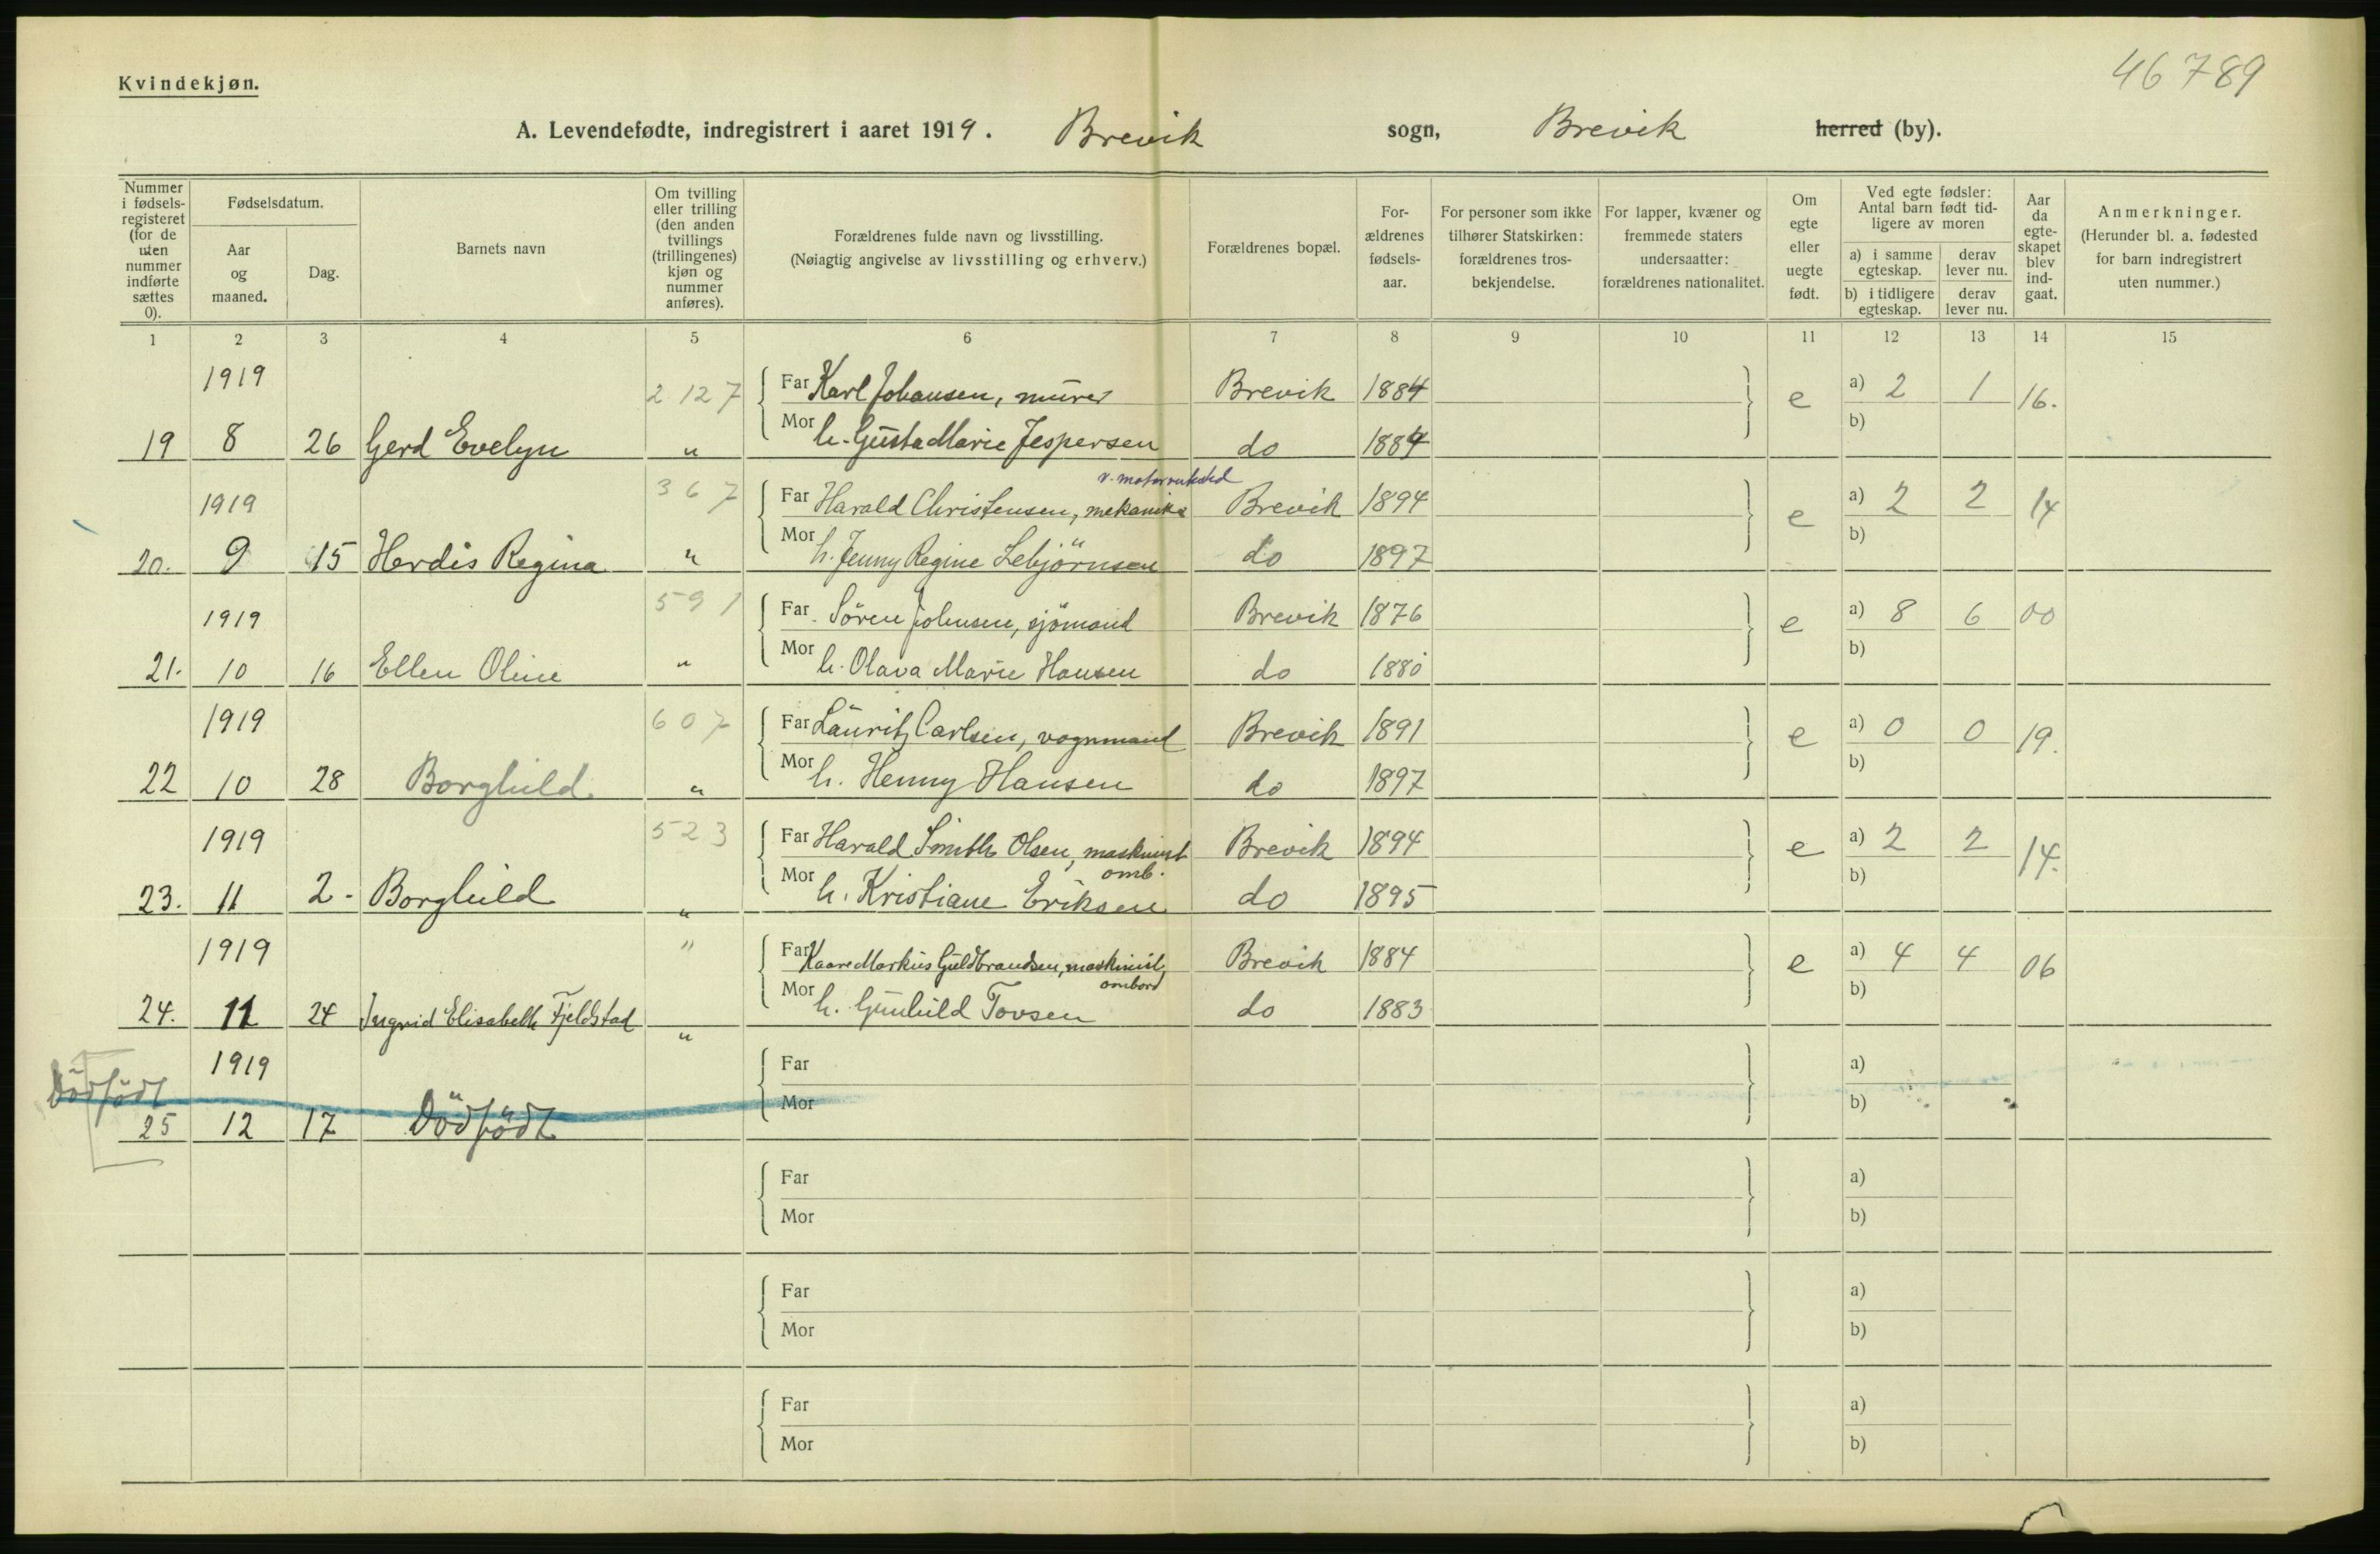 46789
Kvindekjøn.
A. Levendefødte, indregistrert i aaret 1919. Brevik sogn, Brevik herred (by).
Nummer i fødsels-registeret (for de uten nummer indførte sættes 0).
Fødselsdatum.
Aar og maaned.
Dag.
Barnets navn
Om tvilling eller trilling (den anden tvillings (trillingenes) kjøn og nummer anføres).
Forældrenes fulde navn og livsstilling.
(Nøiagtig angivelse av livsstilling og erhverv.)
Forældrenes bopæl.
For-ældrenes fødsels-aar.
For personer som ikke tilhører Statskirken: forældrenes tros-bekjendelse.
For lapper, kvæner og fremmede staters undersaatter: forældrenes nationalitet.
Om egte eller uegte født.
Ved egte fødsler: Antal barn født tid-ligere av moren
a) i samme egteskap. derav lever nu.
b) i tidligere egteskap. derav lever nu.
Aar da egte-skapet blev ind-gaat.
Anmerkninger.
(Herunder bl. a. fødested for barn indregistrert uten nummer.)
1 2 3 4 5 6 7 8 9 10 11 12 13 14 15
1919 2 127 Far Karl Johansen, murer Brevik 1884 e a) 2 1 16.
19 8 26 Gerd Evelyn " Mor h. Gusta Marie Jespersen do 1884 b)
v. motorverksted
1919 367 Far Harald Christensen, mekaniker Brevik 1894 e a) 2 2 14
20. 9 15 Herdis Regina " Mor h. Jenny Regine Lebjörnsen do 1897 b)
1919 591 Far Sören Johnsen, sjömand Brevik 1876 e a) 8 6 00
21. 10 16 Ellen Oline " Mor h. Olava Marie Hansen do 1880 b)
1919 607 Far Lauritz Carlsen, vognmand Brevik 1891 e a) 0 0 19.
22 10 28 Borghild " Mor h. Henny Hansen do 1897 b)
1919 523 Far Harald Smith Olsen, maskinist Brevik 1894 e a) 2 2 14.
omb.
23. 11 2- Borghild " Mor h. Kristiane Eriksen do 1895 b)
1919 " Far Kaare Markus Guldbrandsen, maskinist, Brevik 1884 e a) 4 4 06
ombord
24. 11 24 Ingrid Elisabeth Fjeldstad " Mor h. Gunhild Tovsen do 1883 b)
1919 Far a)
Dödfödt
25 12 17 Dödfödt Mor b)
Far a)
Mor b)
Far a)
Mor b)
Far a)
Mor b)